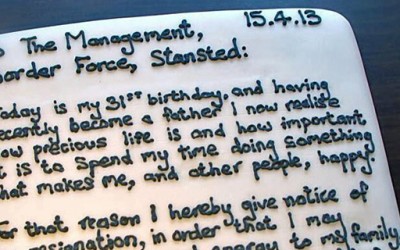 The Management, 15.4.13
Border Force, Stansted:
Today is my 31ST birthday, and having
recently become a father I now realise
how precious life is and how important
it is to spend my time doing something
that makes me, and other people, happy.
For that reason I hereby give notice of
resignation, in order that I may
my family